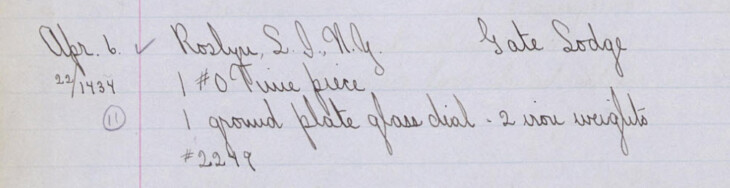 Apr. 6. ✓ Roslyn, L. I., N.Y. Gate Lodge
22/1434 1 #0 Time piece
11 1 ground plate glass dial - 2 iron weights
#2249